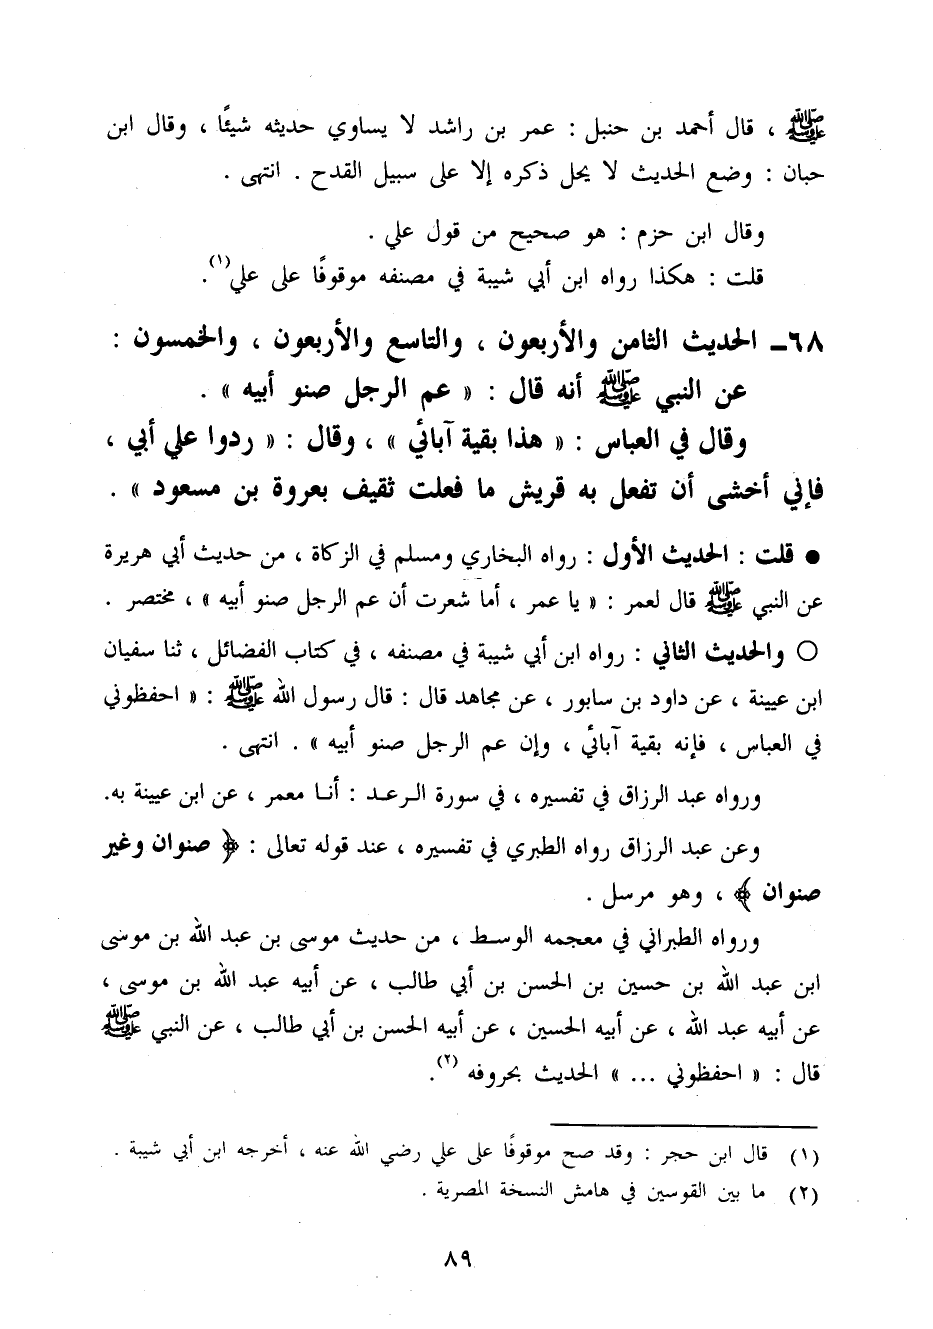 ﷺ ، قال أحمد بن حنبل : عمر بن راشد لا يساوي حديثه شيئًا ، وقال ابن
حبان : وضع الحديث لا يحل ذكره إلا على سبيل القدح . انتهى .
وقال ابن حزم : هو صحيح من قول علي .
قلت : هكذا رواه ابن أبي شيبة في مصنفه موقوفًا على علي(١).
٦٨ـ الحديث الثامن والأربعون ، والتاسع والأربعون ، والخمسون :
عن النبي ﷺ أنه قال : « عم الرجل صنو أبيه » .
وقال في العباس : « هذا بقية آبائي » ، وقال : « ردوا علي أبي ،
فإني أخشى أن تفعل به قريش ما فعلت ثقيف بعروة بن مسعود » .
● قلت : الحديث الأول : رواه البخاري ومسلم في الزكاة ، من حديث أبي هريرة
عن النبي ﷺ قال لعمر : « يا عمر ، أما شعرت أن عم الرجل صنو أبيه » ، مختصر .
○ والحديث الثاني : رواه ابن أبي شيبة في مصنفه ، في كتاب الفضائل ، ثنا سفيان
ابن عيينة ، عن داود بن سابور ، عن مجاهد قال : قال رسول الله ﷺ : « احفظوني
في العباس ، فإنه بقية آبائي ، وإن عم الرجل صنو أبيه » . انتهى .
ورواه عبد الرزاق في تفسيره ، في سورة الرعد : أنا معمر ، عن ابن عيينة به.
وعن عبد الرزاق رواه الطبري في تفسيره ، عند قوله تعالى : ﴿ صنوان وغير
صنوان ﴾ ، وهو مرسل .
ورواه الطبراني في معجمه الوسط ، من حديث موسى بن عبد الله بن موسى
ابن عبد الله بن حسين بن الحسن بن أبي طالب ، عن أبيه عبد الله بن موسى ،
عن أبيه عبد الله ، عن أبيه الحسين ، عن أبيه الحسن بن أبي طالب ، عن النبي ﷺ
قال : « احفظوني ... » الحديث بحروفه (٢).
(١) قال ابن حجر : وقد صح موقوفًا على علي رضي الله عنه ، أخرجه ابن أبي شيبة .
(٢) ما بين القوسين في هامش النسخة المصرية .
٨٩